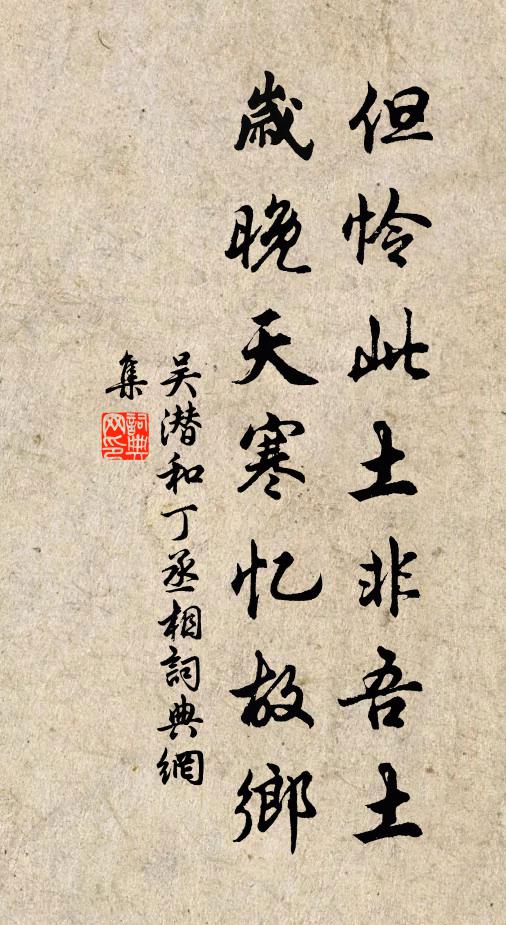 但怜此土非吾土
歲晚天寒忆故鄉
吴潜和丁丞相詞典網
集
詞典网印